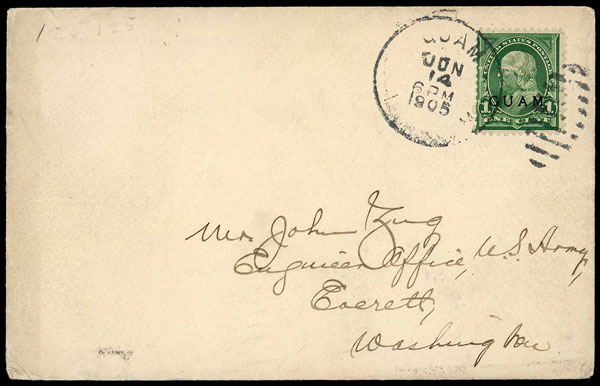 GUAM
JUN
14
6 PM
1905
UNITED STATES POSTAGE
1 GUAM 1
ONE CENT
Mr. John King
Engineer Office, U.S. Army,
Everett,
Washington